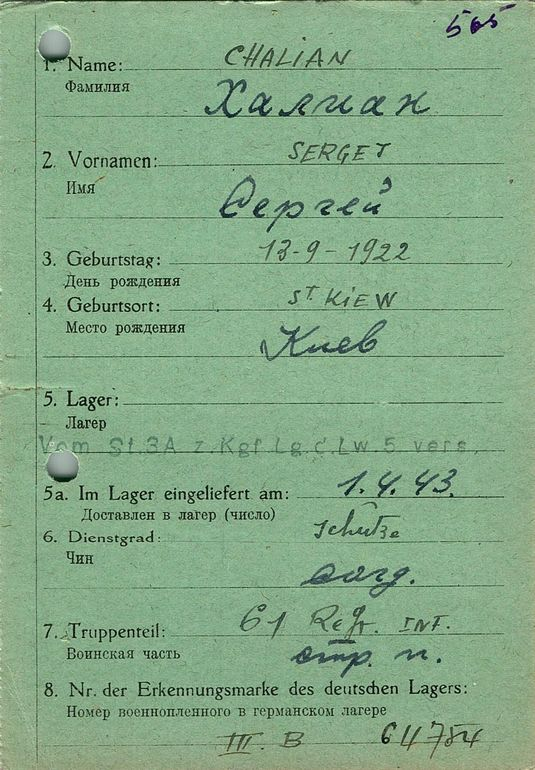 565
1. Name: CHALIAN
Фамилия
Халиан
2. Vornamen: SERGEJ
Имя
Сергей
3. Geburtstag: 13-9-1922
День рождения
4. Geburtsort: ST. KIEW
Место рождения
Киев
5. Lager:
Лагер
Vom St.3A z.Kgf Lg.d.Lw 5 vers.
5a. Im Lager eingeliefert am: 1.4.43.
Доставлен в лагер (число)
6. Dienstgrad: Schütze
Чин
солд.
7. Truppenteil: 61 Regt. INF.
Воинская часть
стр. п.
8. Nr. der Erkennungsmarke des deutschen Lagers:
Номер военнопленного в германском лагере
III. B 64784